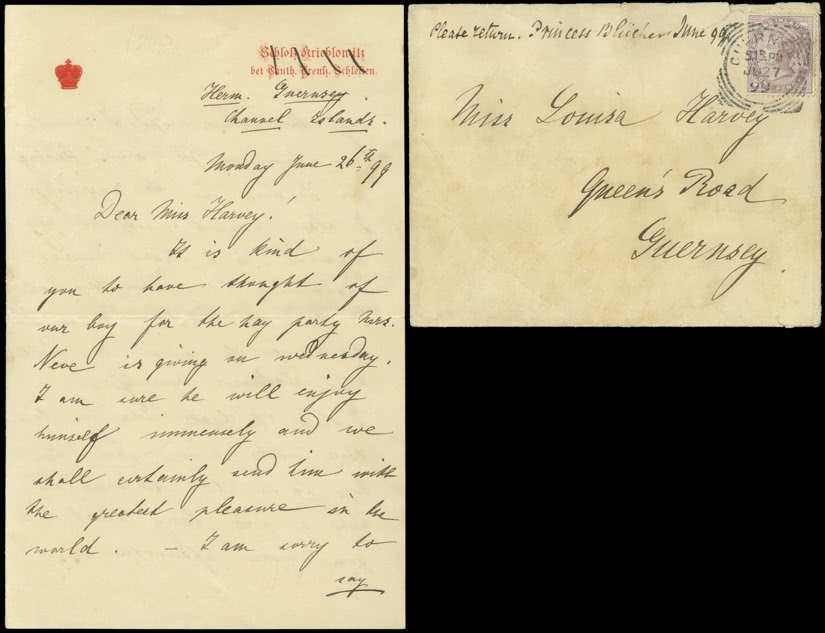 Schloß Krieblowitz
bei Canth. Preuß. Schlesien.
Herm. Guernsey.
Channel Islands.
Monday June 26th 99
Dear Miss Harvey!
It is kind of
you to have thought of
our boy for the hay party Mrs.
Neve is giving on Wednesday.
I am sure he will enjoy
himself immensely and we
shall certainly send him with
the greatest pleasure in the
world. – I am sorry to
say
Please return. Princess Blücher June 99
GUERNSEY
5.15 PM
JU 27
99
Miss Louisa Harvey
Queen's Road
Guernsey.